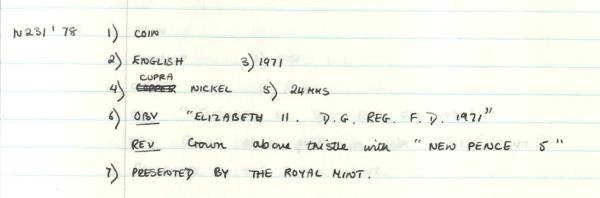 N231 '78 1) COIN
2) ENGLISH 3) 1971
CUPRA
4) COPPER NICKEL 5) 24 MMS
6) OBV "ELIZABETH II. D.G. REG. F.D. 1971"
REV Crown above thistle with "NEW PENCE 5"
7) PRESENTED BY THE ROYAL MINT.